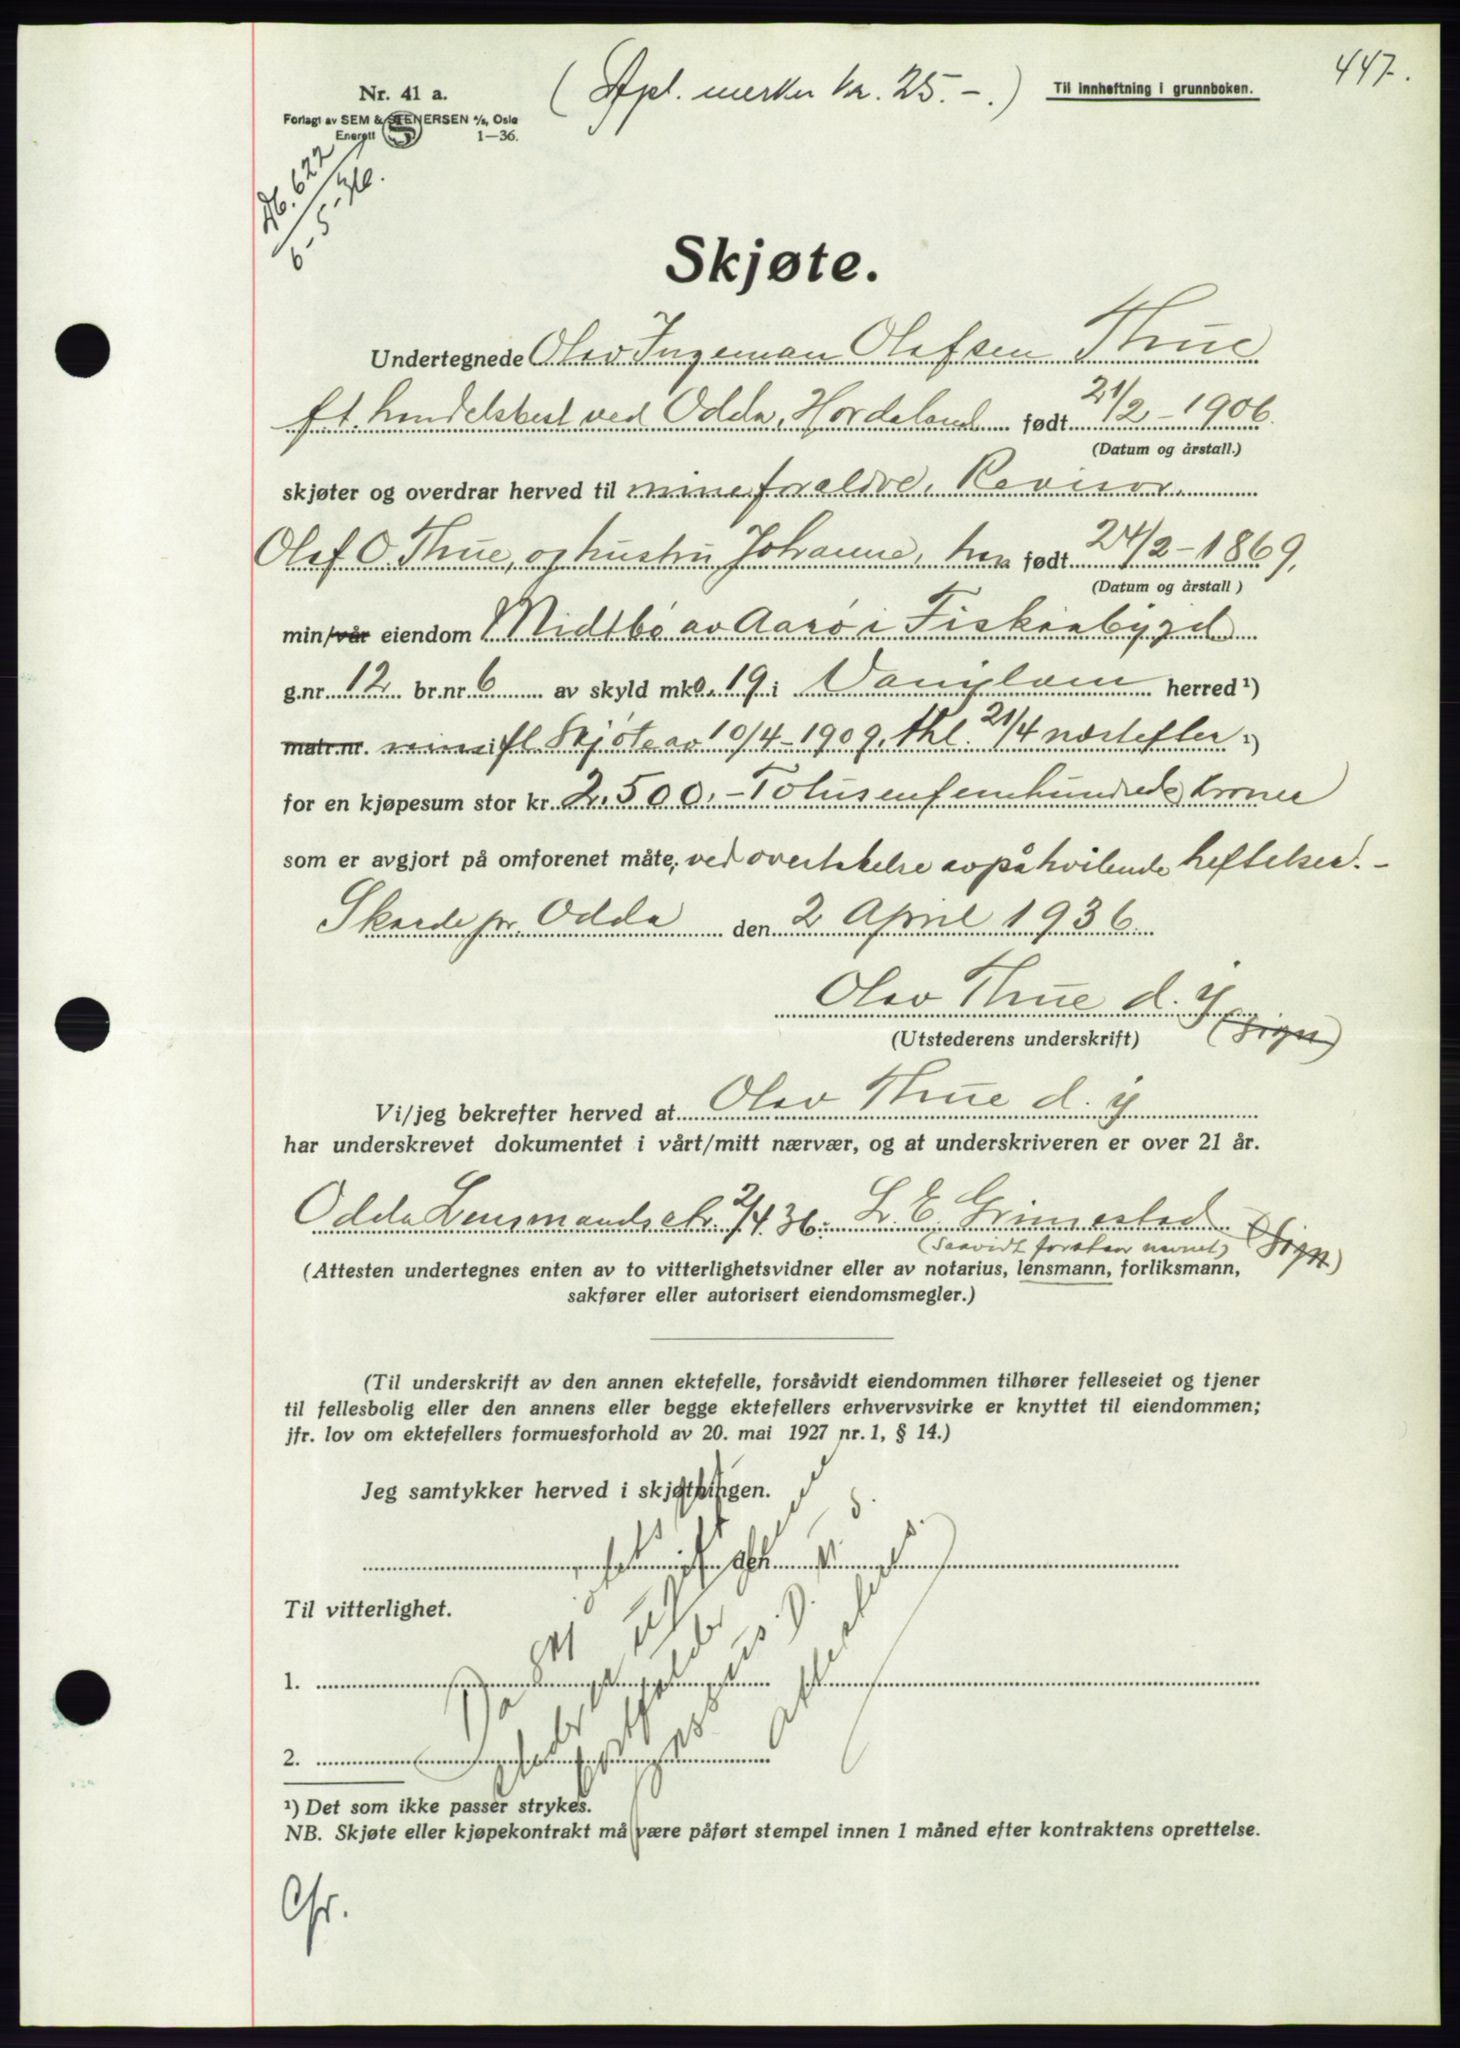 447.
(Stpl. merker kr. 25.-.)
Til innheftning i grunnboken.
Nr. 41 a.
Forlagt av SEM & STENERSEN A/S, Oslo
Enerett 1—36.
Db. 622
6-5-36.
Skjøte.
Undertegnede Olav Ingeman Olafsen Thue
f.t. handelsbest ved Odda, Hordaland født 21/2-1906.
(Datum og årstall.)
skjøter og overdrar herved til mine foreldre, Revisor,
Olaf O. Thue, og hustru Johanne, han født 24/2-1869,
(Datum og årstall)
min/vår eiendom Midtbö av Aarö i Fiskåabygd
g.nr. 12 br.nr. 6 av skyld mk 0.19 i Vanylven herred ¹)
matr.nr. i fl. Skjöte av 10/4-1909, thl. 21/4 næstefter ¹)
for en kjøpesum stor kr. 2.500.- Totusenfemhundrede kroner
som er avgjort på omforenet måte, ved overtakelse av påhvilende heftelser.-
Skarde pr. Odda den 2 April 1936
Olav Thue d. y
(Utstederens underskrift) (sign)
Vi/jeg bekrefter herved at Olav Thue d. y
har underskrevet dokumentet i vårt/mitt nærvær, og at underskriveren er over 21 år.
Odda Lensmandsktr. 2/4.36. L. E. Grimestad
(saavidt forstaar navnet) (Sign)
(Attesten undertegnes enten av to vitterlighetsvidner eller av notarius, lensmann, forliksmann,
sakfører eller autorisert eiendomsmegler.)
(Til underskrift av den annen ektefelle, forsåvidt eiendommen tilhører felleseiet og tjener
til fellesbolig eller den annens eller begge ektefellers erhvervsvirke er knyttet til eiendommen;
jfr. lov om ektefellers formuesforhold av 20. mai 1927 nr. 1, § 14.)
Jeg samtykker herved i skjøtningen.
den
Til vitterlighet.
1.
2.
Da skjötets ut
steder er ugift
bortfalder
D. S.
Attesteres.
¹) Det som ikke passer strykes.
NB. Skjøte eller kjøpekontrakt må være påført stempel innen 1 måned efter kontraktens oprettelse.